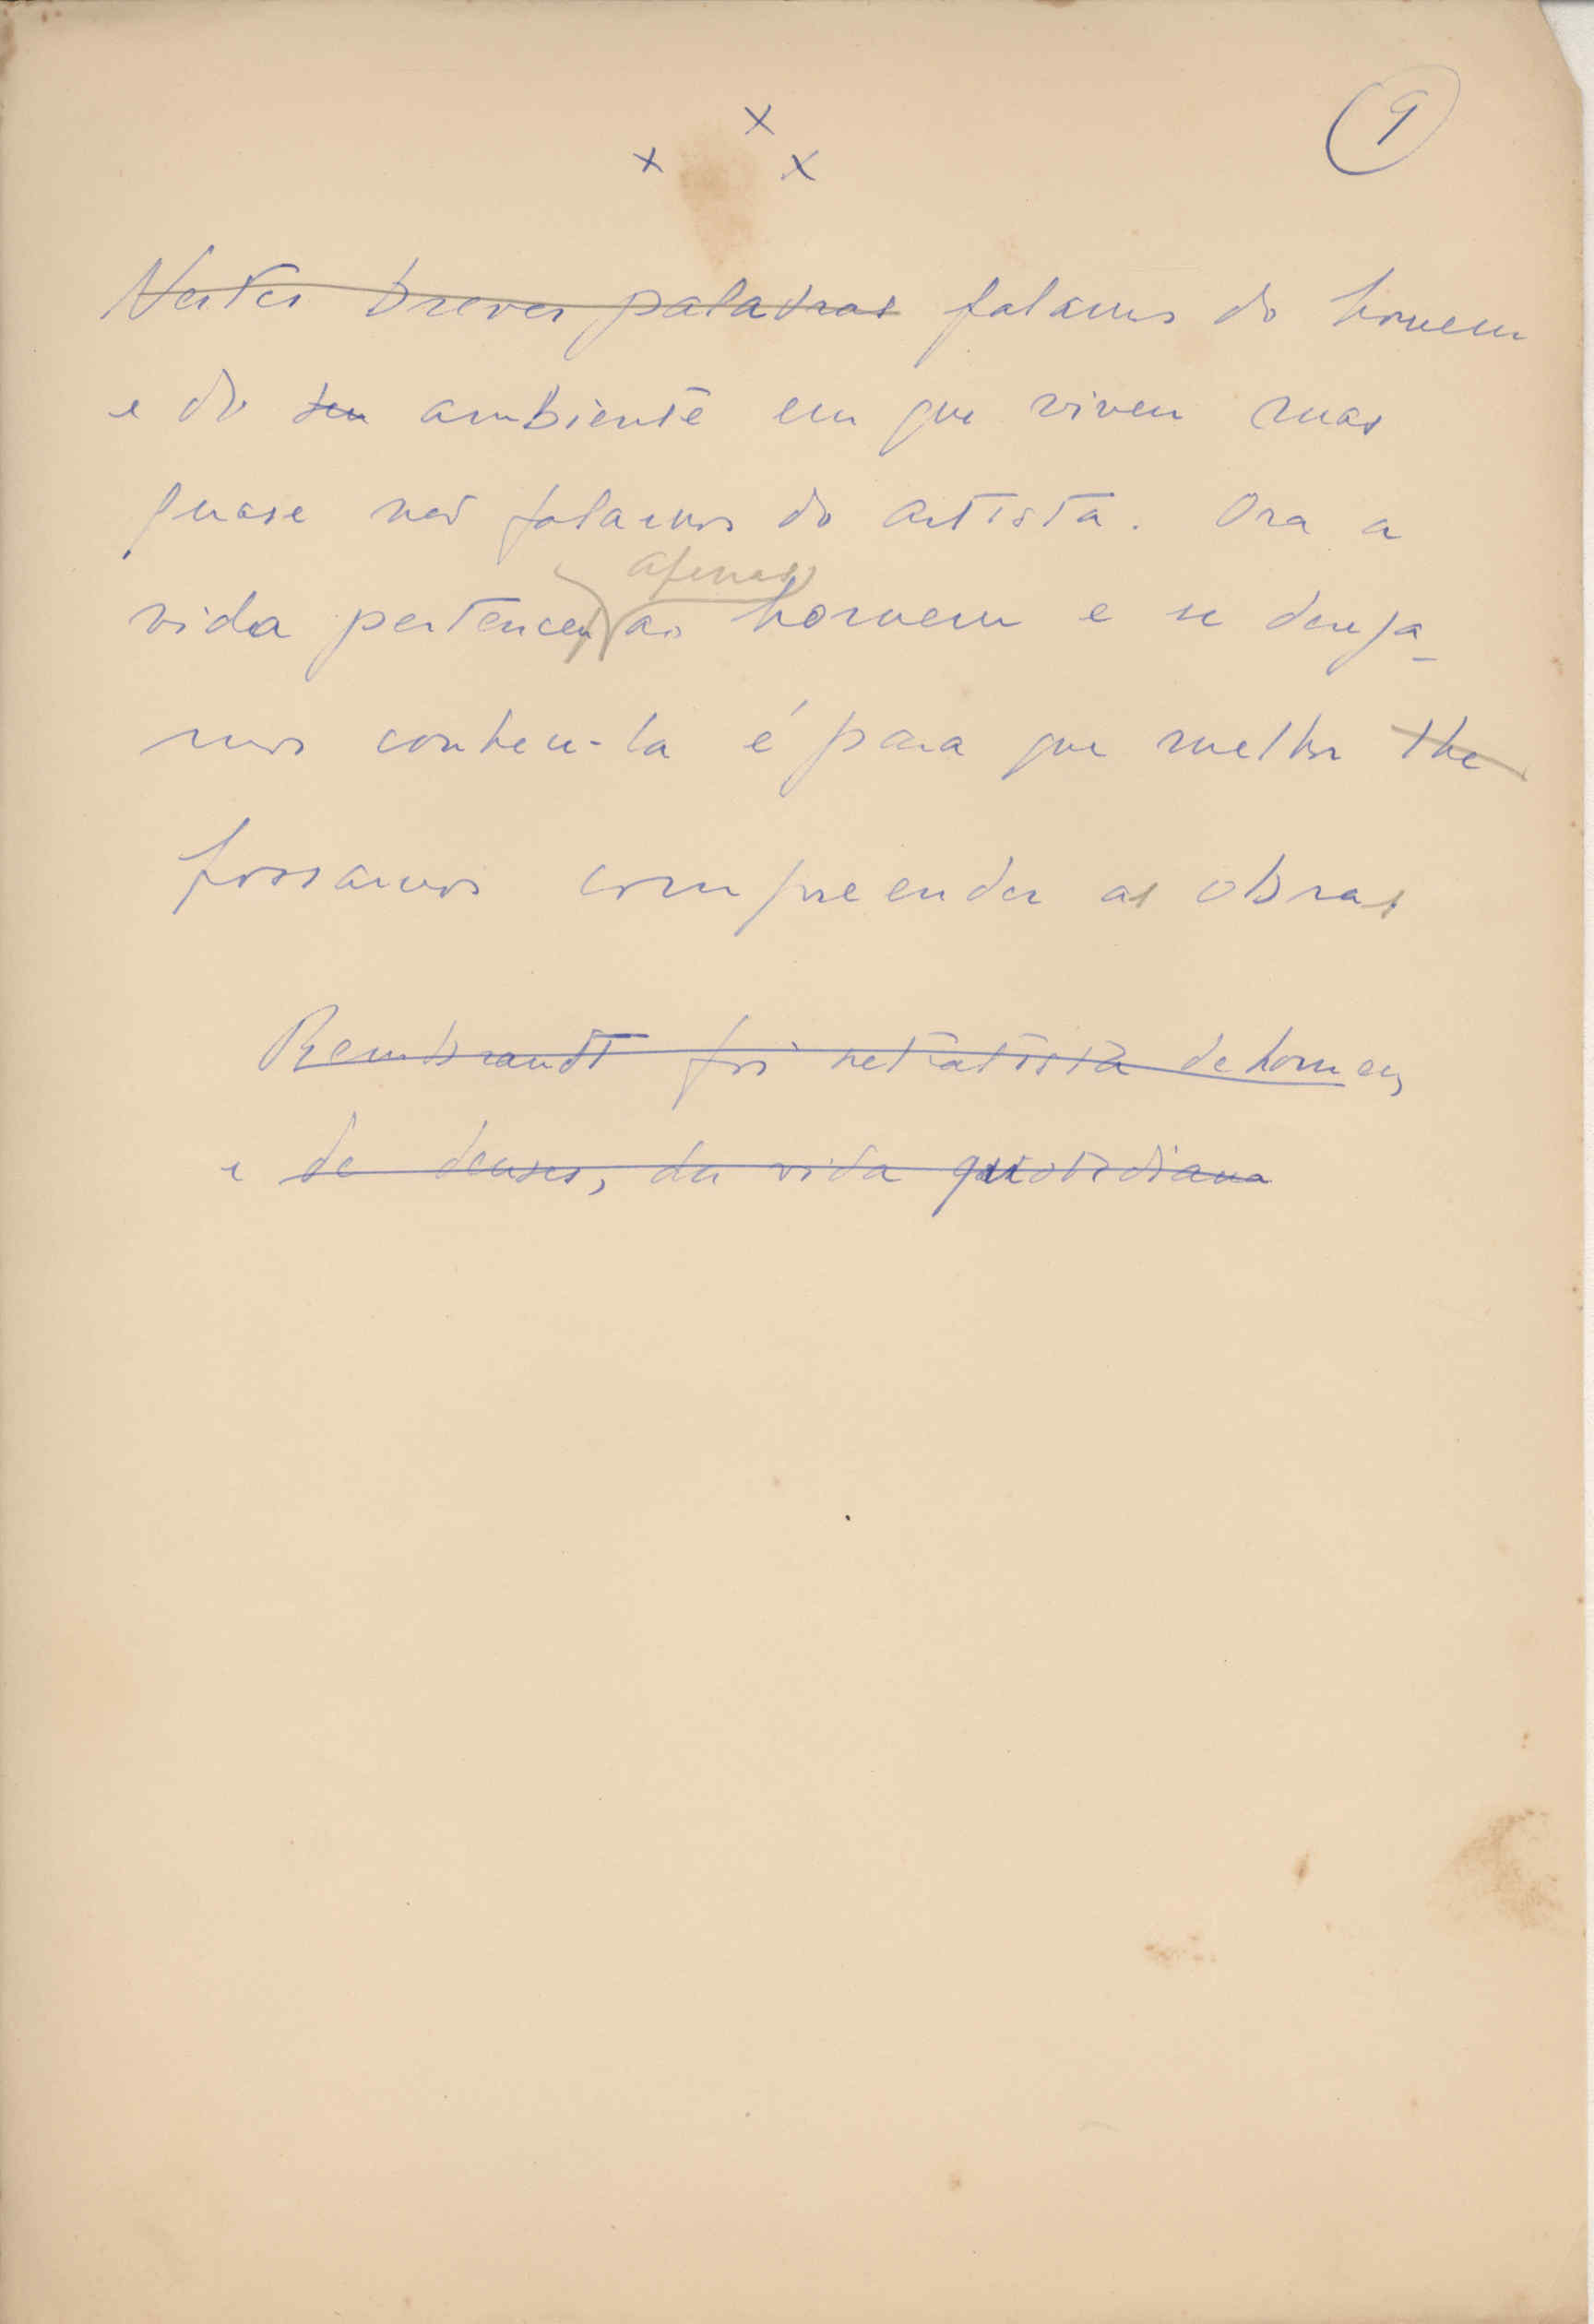 9
x
x x
Nestas breves palavras falamos do homem
e do seu ambiente em que viveu mas
quase não falamos do artista. Ora a
apenas
vida pertenceu ao homem e se deseja-
mos conhece-la é para que melhor lhe
possamos compreender as obras
Rembrandt foi retratista de homens
e de deuses, da vida quotidiana